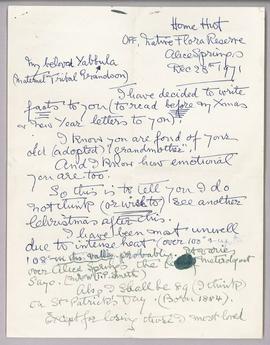 Home Hut
Off. Native Flora Reserve
Alice Springs
Dec 23rd 1971
My beloved Yabbula
(Maternal Tribal Grandson)
I have decided to write
facts to you (to read before my Xmas
or New Year letters to you).
I know you are fond of your
old (adopted) "grandmother".
And I know how emotional
you are too.
So this is to tell you I do
not think (or wish to) see another
Christmas after this.
I have been most unwell
due to intense heat (over 103°
108° in this valley probably.
over Alice Springs the meteorologist
says.
Also I shall be 89 (I think)
on St Patrick's Day. (Born 1884).
Except for losing those I most loved